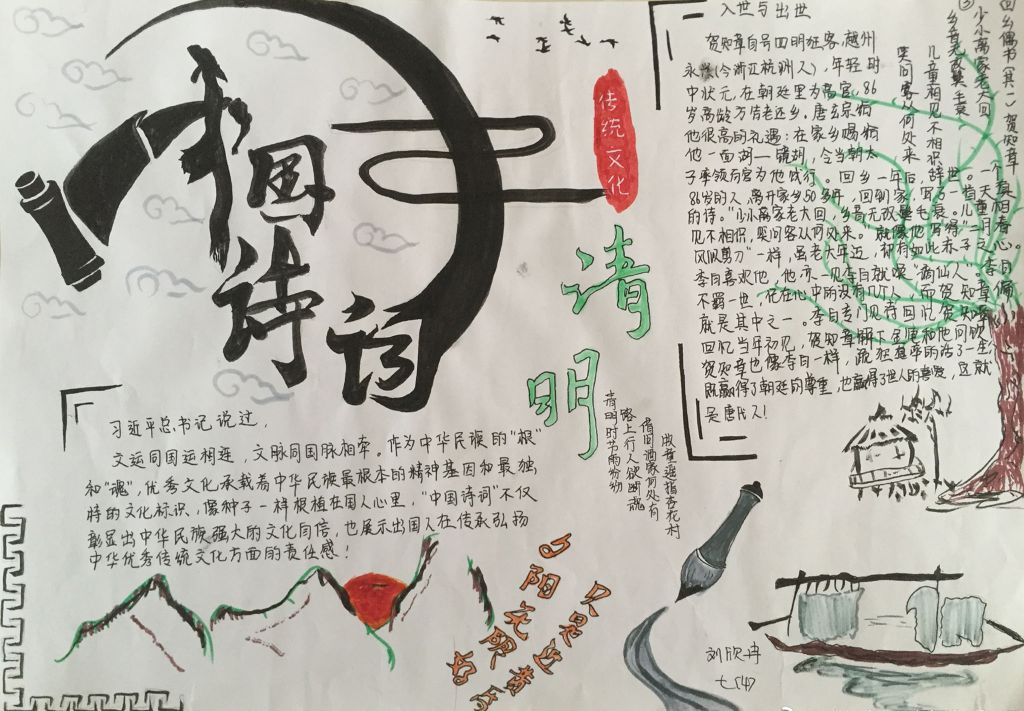 中国诗词
传统文化
清明
清明时节雨纷纷
路上行人欲断魂
借问酒家何处有
牧童遥指杏花村
习近平总书记说过，
文运同国运相连，文脉同国脉相牵。作为中华民族的“根”
和“魂”，优秀文化承载着中华民族最根本的精神基因和最独
特的文化标识，像种子一样根植在国人心里，“中国诗词”不仅
彰显出中华民族强大的文化自信，也展示出国人在传承弘扬
中华优秀传统文化方面的责任感！
夕阳无限好
只是近黄
入世与出世
贺知章自号四明狂客，越州
永兴(今浙江杭州人)，年轻时
中状元，在朝廷里为高官，86
岁高龄万情老还乡。唐玄宗给
他很高的礼遇：在家乡赐给
他一面湖—镜湖，令当朝太
子率领百官为他饯行。回乡一年后，辞世。一个
86岁的人，离开家乡50多年，回到家，写了一首天真
的诗。“少小离家老大回，乡音无改鬓毛衰。儿童相
见不相识，笑问客从何处来。”就像他写得“二月春
风似剪刀”一样，虽老大年迈，却有如此赤子之心。
李白喜欢他，他亦一见李白就唤“谪仙人”。李白
不羁一世，
就是其中之一。李白专门见诗回忆贺知章
回忆当年初见，贺知章解下金龟和他同饮
贺知章也像李白一样，疏狂
既赢得了朝廷的尊重，也赢得了世人的喜爱，这就
是唐代人！
回乡偶书(其一) 贺知章
少小离家老大回
乡音无改鬓毛衰
儿童相见不相识
笑问客从何处来
刘欣冉
七(4)